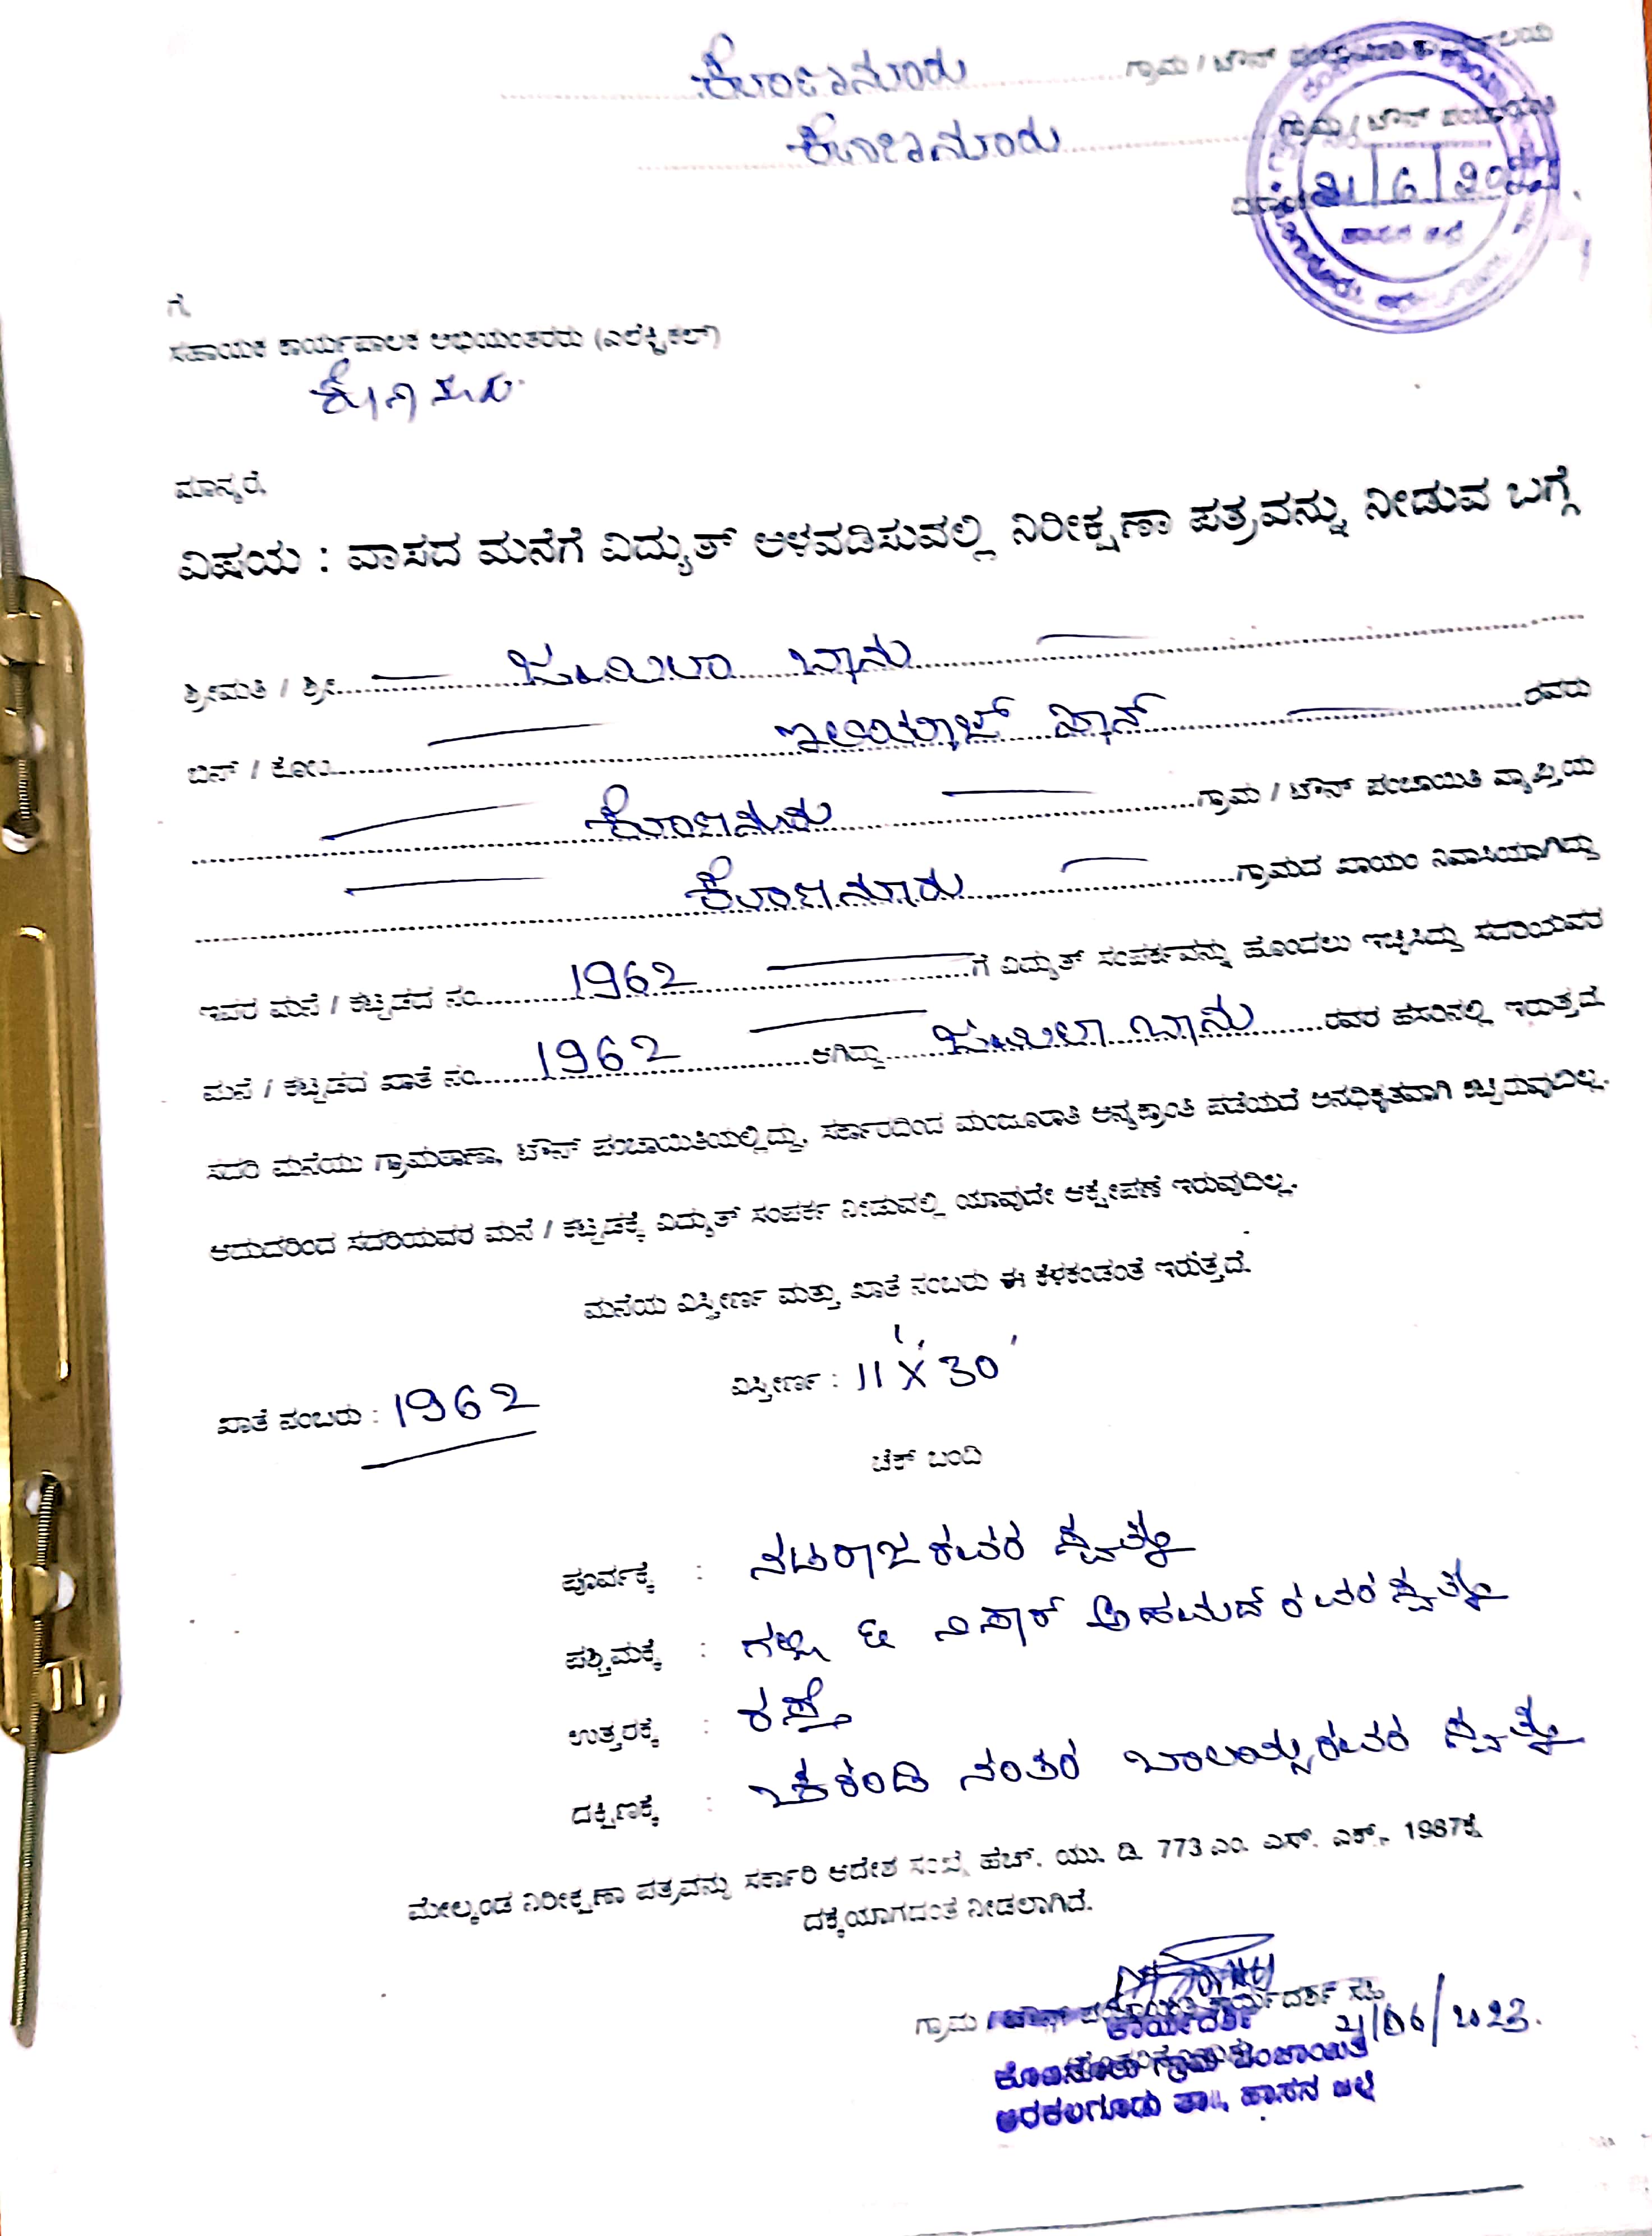 ಕೊಣನೂರು ಗ್ರಾಮ / ಟೌನ್ ಪಂಚಾಯಿತಿ ಕಾರ್ಯಾಲಯ
ಕೊಣನೂರು ಗ್ರಾಮ / ಟೌನ್ ಪಂಚಾಯಿತಿ
21/6/20
ಹಾಸನ ಜಿಲ್ಲೆ
ಗೆ,
ಸಹಾಯಕ ಕಾರ್ಯಪಾಲಕ ಅಭಿಯಂತರರು (ಎಲೆಕ್ಟ್ರಿಕಲ್)
ಮಾನ್ಯರೆ,
ವಿಷಯ : ವಾಸದ ಮನೆಗೆ ವಿದ್ಯುತ್ ಅಳವಡಿಸುವಲ್ಲಿ ನಿರೀಕ್ಷಣಾ ಪತ್ರವನ್ನು ನೀಡುವ ಬಗ್ಗೆ
ಶ್ರೀಮತಿ / ಶ್ರೀ ಜಮೀಲಾ ಬಾನು
ಬಿನ್ / ಕೋಂ ಇಲಿಯಾಜ್ ಖಾನ್ ರವರು
ಕೊಣನೂರು ಗ್ರಾಮ / ಟೌನ್ ಪಂಚಾಯಿತಿ ವ್ಯಾಪ್ತಿಯ
ಕೊಣನೂರು ಗ್ರಾಮದ ಖಾಯಂ ನಿವಾಸಿಯಾಗಿದ್ದು
ಇವರ ಮನೆ / ಕಟ್ಟಡದ ನಂ 1962 ಗೆ ವಿದ್ಯುತ್ ಸಂಪರ್ಕವನ್ನು ಹೊಂದಲು ಇಚ್ಛಿಸಿದ್ದು ಸದರಿಯವರ
ಮನೆ / ಕಟ್ಟಡದ ಖಾತೆ ನಂ 1962 ಆಗಿದ್ದು ಜಮೀಲಾ ಬಾನು ರವರ ಹೆಸರಿನಲ್ಲಿ ಇರುತ್ತದೆ.
ಸದರಿ ಮನೆಯು ಗ್ರಾಮಠಾಣಾ, ಟೌನ್ ಪಂಚಾಯಿತಿಯಲ್ಲಿದ್ದು, ಸರ್ಕಾರದಿಂದ ಮಂಜೂರಾತಿ ಅನ್ಯಕ್ರಾಂತಿ ಪಡೆಯದೆ ಅನಧಿಕೃತವಾಗಿ ಕಟ್ಟಿರುವುದಿಲ್ಲ.
ಆದುದರಿಂದ ಸದರಿಯವರ ಮನೆ / ಕಟ್ಟಡಕ್ಕೆ ವಿದ್ಯುತ್ ಸಂಪರ್ಕ ನೀಡುವಲ್ಲಿ ಯಾವುದೇ ಆಕ್ಷೇಪಣೆ ಇರುವುದಿಲ್ಲ.
ಮನೆಯ ವಿಸ್ತೀರ್ಣ ಮತ್ತು ಖಾತೆ ನಂಬರು ಈ ಕೆಳಕಂಡಂತೆ ಇರುತ್ತದೆ.
ಖಾತೆ ನಂಬರು : 1962 ವಿಸ್ತೀರ್ಣ : 11' X 30'
ಚೆಕ್ ಬಂದಿ
ಪೂರ್ವಕ್ಕೆ : ನಟರಾಜರವರ ಸ್ವತ್ತು
ಪಶ್ಚಿಮಕ್ಕೆ : ಗಲ್ಲಿ & ನಿಸಾರ್ ಅಹಮದ್ ರವರ ಸ್ವತ್ತು
ಉತ್ತರಕ್ಕೆ : ರಸ್ತೆ
ದಕ್ಷಿಣಕ್ಕೆ : ನಂತರ ರವರ ಸ್ವತ್ತು
ಮೇಲ್ಕಂಡ ನಿರೀಕ್ಷಣಾ ಪತ್ರವನ್ನು ಸರ್ಕಾರಿ ಆದೇಶ ಸಂಖ್ಯೆ ಹೆಚ್. ಯು. ಡಿ. 773 ಎಂ. ಎನ್. ಎಕ್. 1987ಕ್ಕೆ
ದಕ್ಕೆಯಾಗದಂತೆ ನೀಡಲಾಗಿದೆ.
ಗ್ರಾಮ / ಟೌನ್ ಪಂಚಾಯಿತಿ ಕಾರ್ಯದರ್ಶಿ ಸಹಿ
ಕಾರ್ಯದರ್ಶಿ 21/06/2023.
ಕೊಣನೂರು ಗ್ರಾಮ ಪಂಚಾಯಿತಿ
ಅರಕಲಗೂಡು ತಾ||, ಹಾಸನ ಜಿಲ್ಲೆ